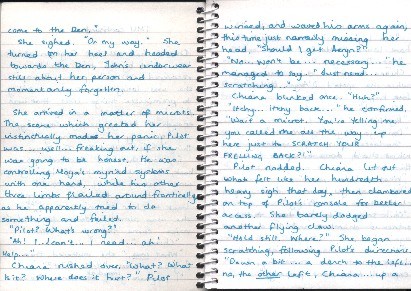 come to the Den."
She sighed. "On my way." She
turned on her heel and headed
towards the Den, John's underwear
still about her person and
momentarily forgotten.
She arrived in a matter of microts.
The scene which greeted her
instinctually made her panic. Pilot
was... well... freaking out, if she
was going to be honest. He was
controlling Moya's myriad systems
with one hand, while his other
three limbs flailed around frantically
as he apparently tried to do
something and failed.
"Pilot? What's wrong?"
"Ah! I... can't... I need... ah!
Help..."
Chiana rushed over, "What? What
is it? Where does it hurt?" Pilot
winced, and waved his arms again,
this time just narrowly missing her
head. "Should I get Aeryn?"
"No... won't be... necessary..." he
managed to say. "Just need...
scratching..."
Chiana blinked once. "Huh?"
"Itchy... itchy back..." he confirmed.
"Wait a microt. You're telling me
you called me all the way up
here just to SCRATCH YOUR
FRELLING BACK?!"
Pilot nodded. Chiana let out
what felt like her hundredth
heavy sigh that day, then clambered
on top of Pilot's console for better
access. She barely dodged
another flying claw.
"Hold still. Where?" She began
scratching, following Pilot's directions.
"Down a bit... a dench to the left...
no, the other left, Chiana... up a